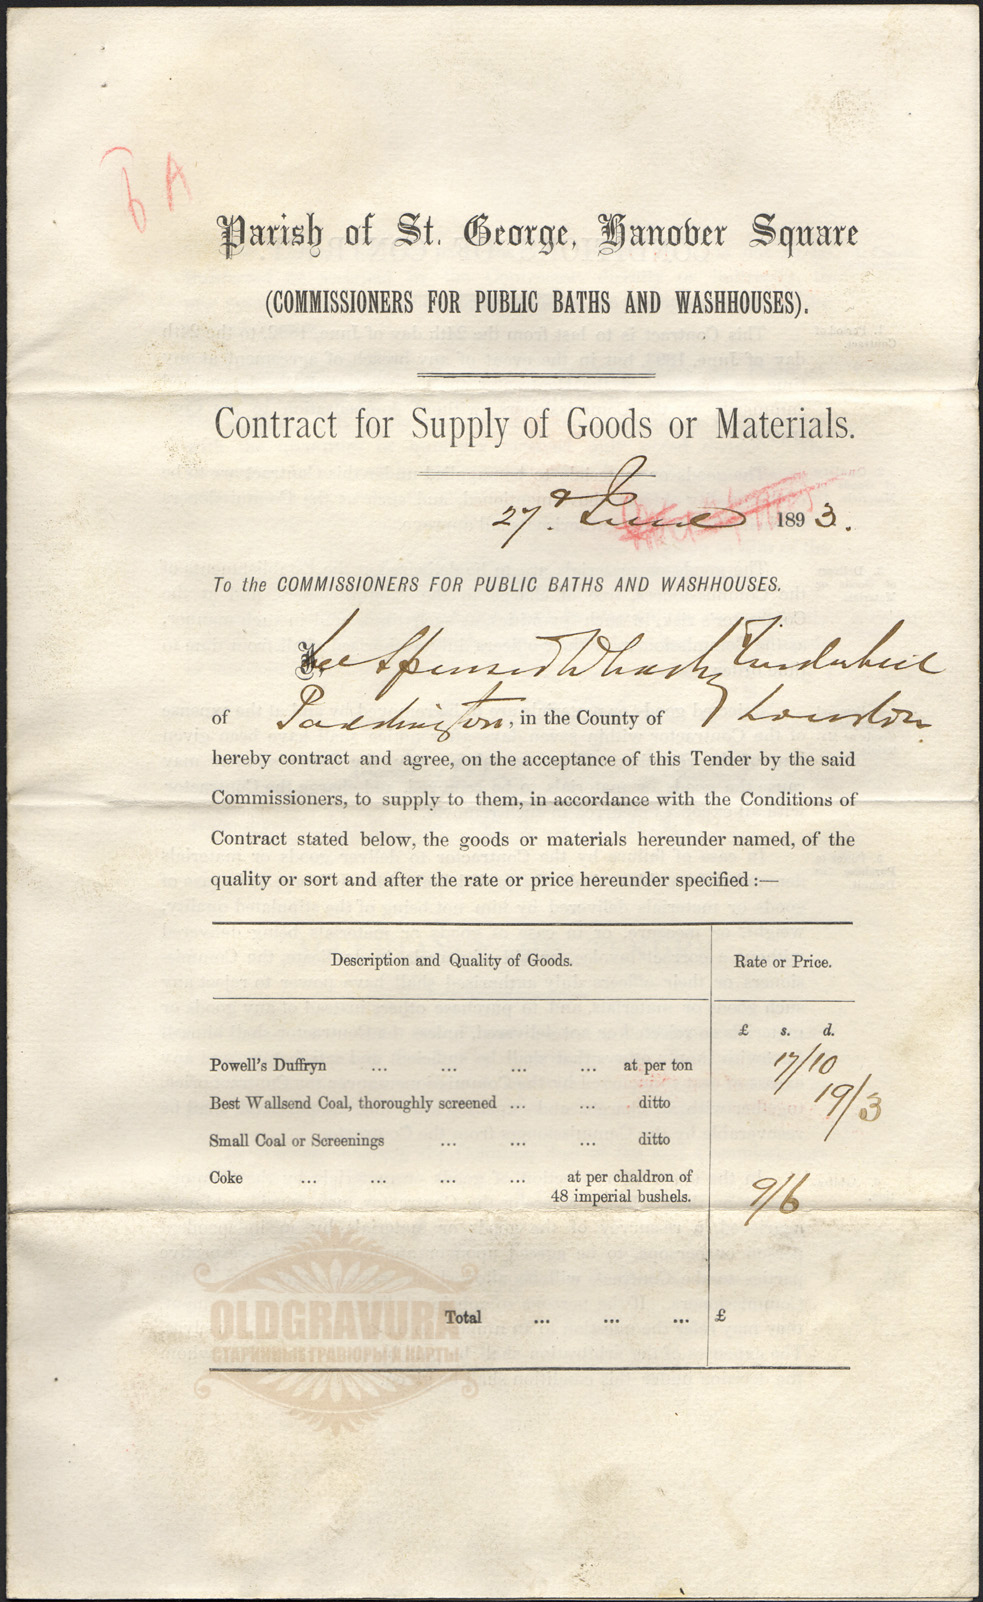 6 A
Parish of St. George, Hanover Square
(COMMISSIONERS FOR PUBLIC BATHS AND WASHHOUSES).
Contract for Supply of Goods or Materials.
27th June 1893.
To the COMMISSIONERS FOR PUBLIC BATHS AND WASHHOUSES.
We Spencer Whatley Underhill
of Paddington, in the County of London
hereby contract and agree, on the acceptance of this Tender by the said
Commissioners, to supply to them, in accordance with the Conditions of
Contract stated below, the goods or materials hereunder named, of the
quality or sort and after the rate or price hereunder specified:—
Description and Quality of Goods. Rate or Price.
£ s. d.
Powell's Duffryn ... ... ... ... at per ton 17/10
Best Wallsend Coal, thoroughly screened ... ... ditto 19/3
Small Coal or Screenings ... ... ... ditto
Coke ... ... ... ... at per chaldron of
48 imperial bushels. 9/6
Total ... ... ... £
OLDGRAVURA
СТАРИННЫЕ ГРАВЮРЫ И КАРТЫ